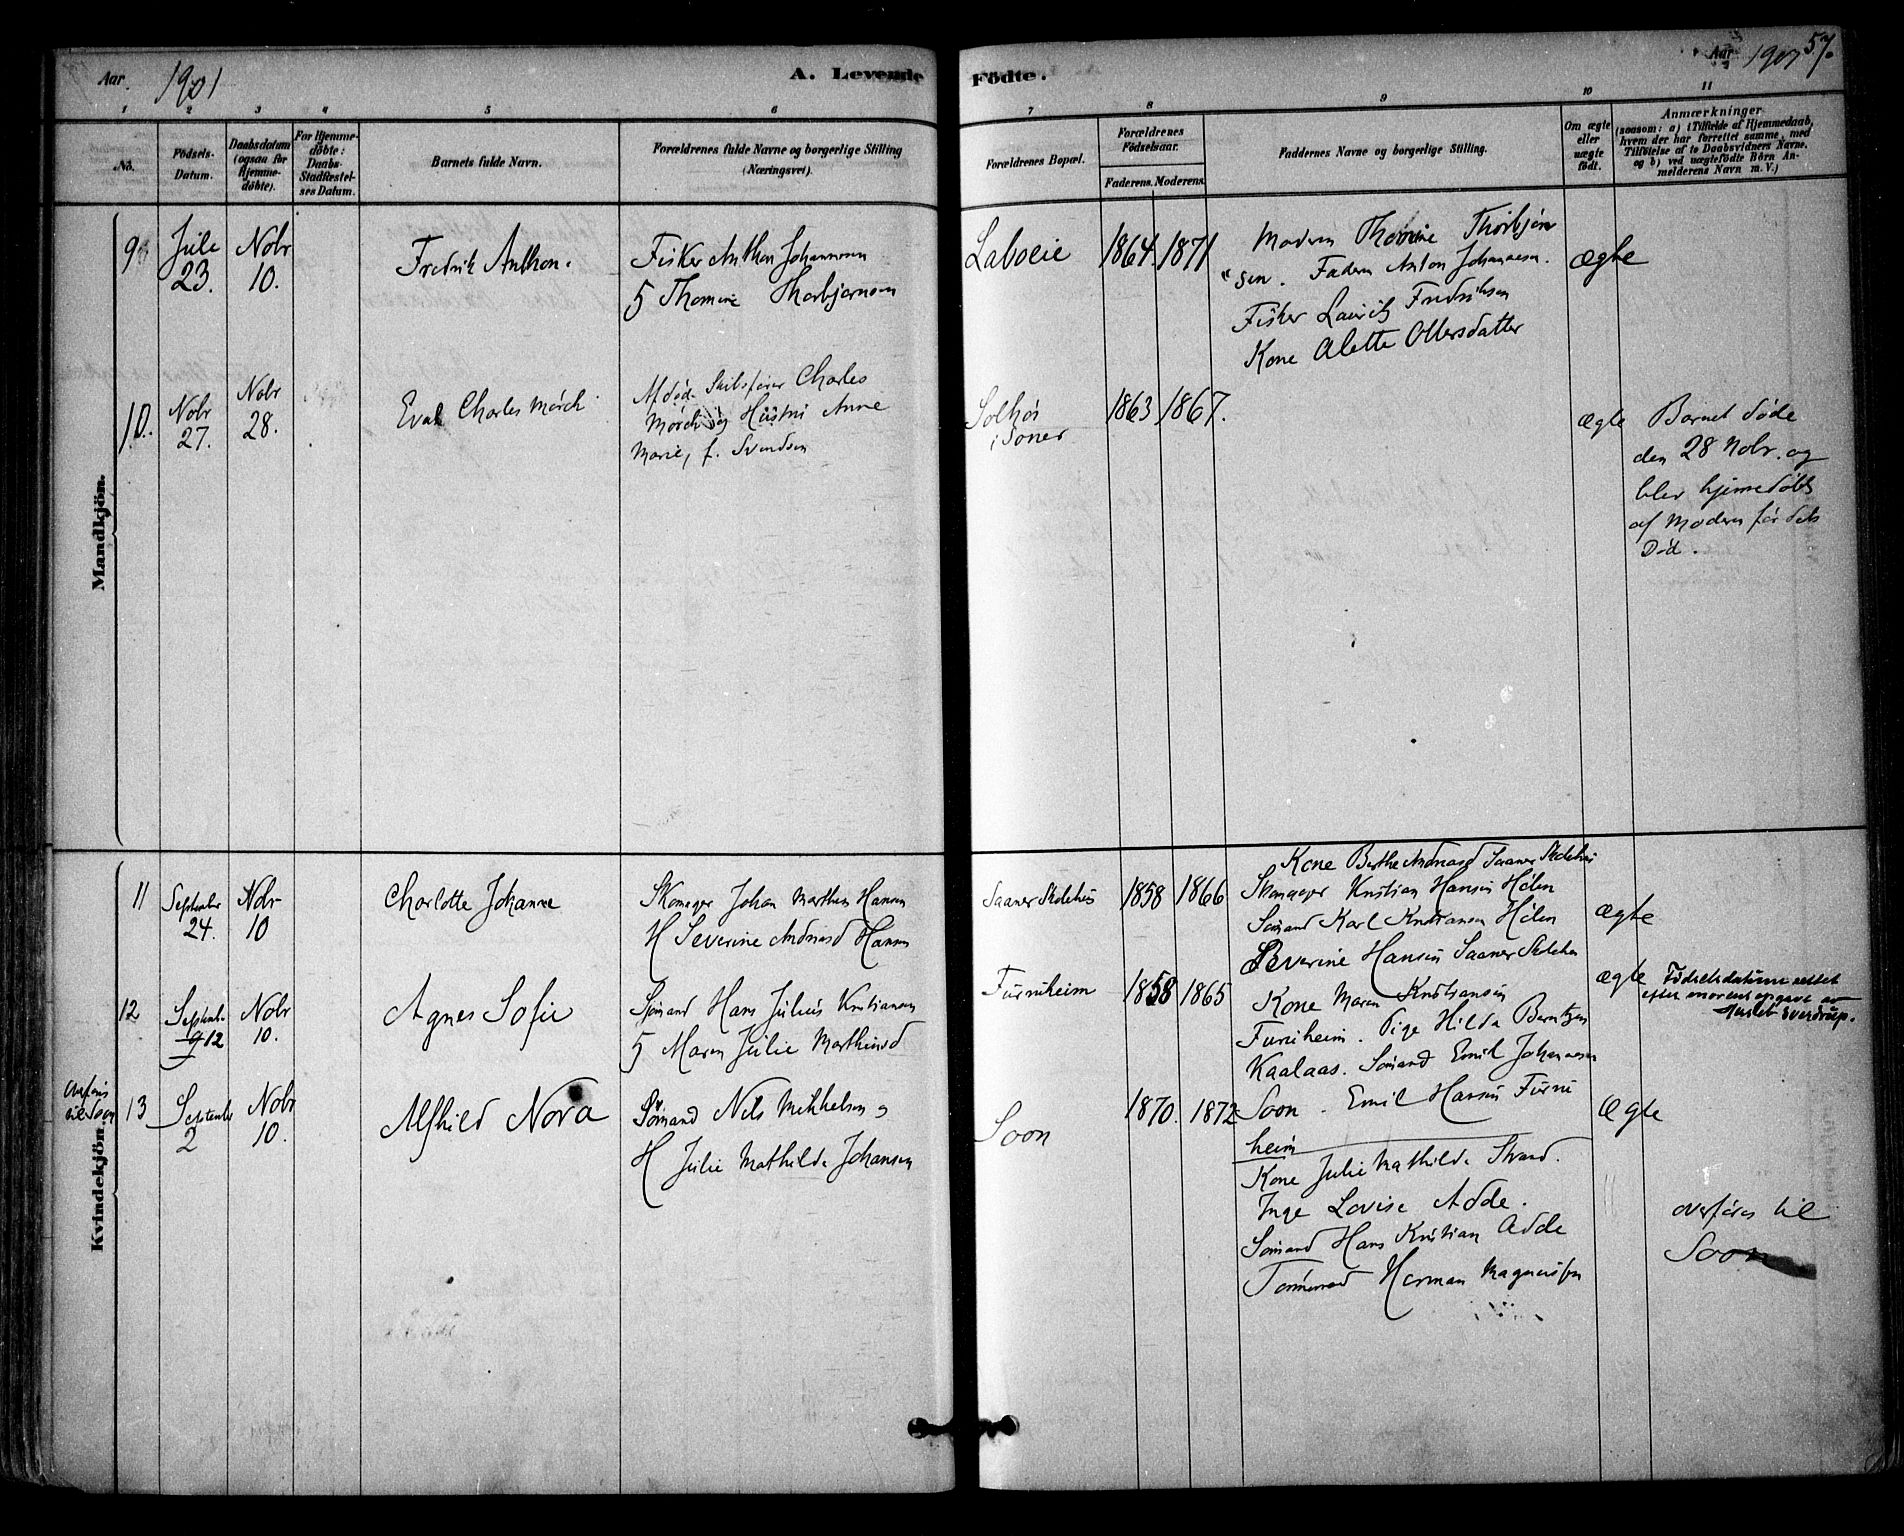 Aar. 1901
A. Levende Födte.
Aar 1901 57.
1 2 3 4 5 6 7 8 9 10 11
No.
Födsels-
Datum.
Daabsdatum
(ogsaa for
Hjemme-
döbte).
For Hjemme-
döbte:
Daabs-
Stadfestel-
ses Datum.
Barnets fulde Navn.
Forældrenes fulde Navne og borgerlige Stilling
(Næringsvei).
Forældrenes Bopæl.
Forældrenes
Födselsaar.
Faderens. Moderens.
Faddernes Navne og borgerlige Stilling.
Om ægte
eller
uægte
födt.
Anmærkninger
(saasom: a) i Tilfælde af Hjemmedaab,
hvem der har forrettet samme, med
Tilföielse af to Daabsvidners Navne,
og b) ved uægtefödte Börn An-
melderens Navn m. V.)
Mandkjön.
9
Jule
23.
Nobr
10.
Fredrik Anthon.
Fisker Anthon Johannesen
H Thomine Thorbjørnsen
Laboeie
1864. 1871
Modern Thomine Thorbjørn
"sen. Fadern Anton Johannesen.
Fisker Lauritz Fredriksen
Kone Alette Ollersdatter
ægte
10.
Nobr
27.
Nobr
28.
Charles Mörch
Afdød. Skibsfører Charles
Mörch og Hustru Anne
Marie, f. Svendsen
Solhøi
i Soner
1863 1867.
ægte
Barnet døde
den 28 Nobr. og
blev hjemedøbt
af Modern før dets
Død.
Kvindekjön.
11
September
24.
Nobr
10
Charlotte Johanne
Skomager Johan Marthin Hansen
H Severine Andreasd Hansen
Saaner Skolehus
1858 1866
Kone Berthe Andreasd Saaner Skolehus
Skomager Kristian Hansen Hølen
Sømand Karl Kristiansen Hølen
Severine Hansen Saaner Skolehus
ægte
12
Septembr
9 12
Nobr
10.
Agnes Sofie
Sømand Hans Julius Kristiansen
H Maren Julie Marthinsd
Furuheim
1858 1865
Kone Maren Kristiansen
Furuheim. Pige Hilda Berntzen
Kaalaas. Sømand Emil Johannesen
Soon. Emil Hansen Furu
heim
ægte
Fødselsdatum rettet
efter
Everdrup.
overføres
til Soon
13
September
2
Nobr
10.
Alfhild Nora
Sømand Nils Mikkelsen
H Julie Mathilde Johansen
Soon
1870. 1872
Kone Julie Mathilde Strand.
Inge Lovise Adde.
Sømand Hans Kristian Adde
Tømmermd Herman Magnussen
ægte
overføres til
Soon